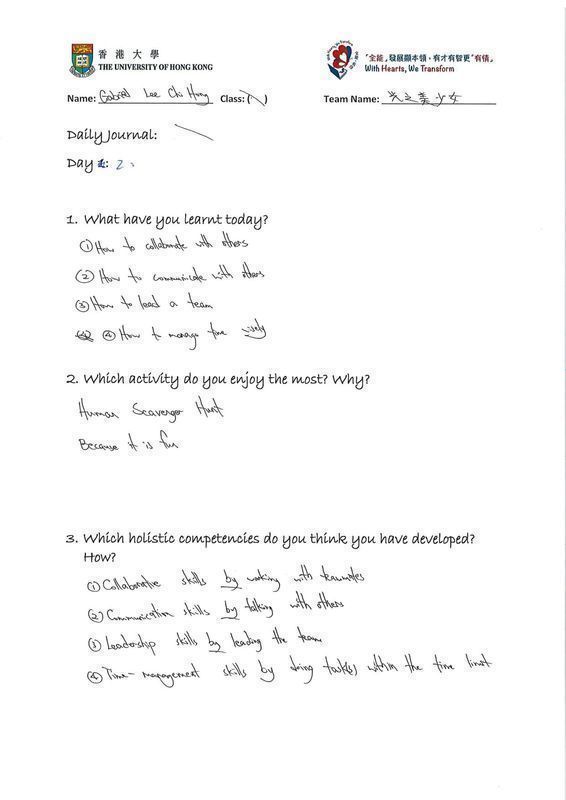 香港大學
THE UNIVERSITY OF HONG KONG
「全能」發展顯本領，有才有智更"有情"
With Hearts, We Transform
Name: Gabriel Lee Chi Hung Class: ( )
Team Name: 光之美少女
Daily Journal:
Day 1: 2
1. What have you learnt today?
① How to collaborate with others
② How to communicate with others
③ How to lead a team
④ How to manage time wisely
2. Which activity do you enjoy the most? Why?
Human Scavenger Hunt
Because it is fun
3. Which holistic competencies do you think you have developed?
How?
① Collaborative skills by working with teammates
② Communication skills by talking with others
③ Leadership skills by leading the team
④ Time-management skills by doing task(s) within the time limit